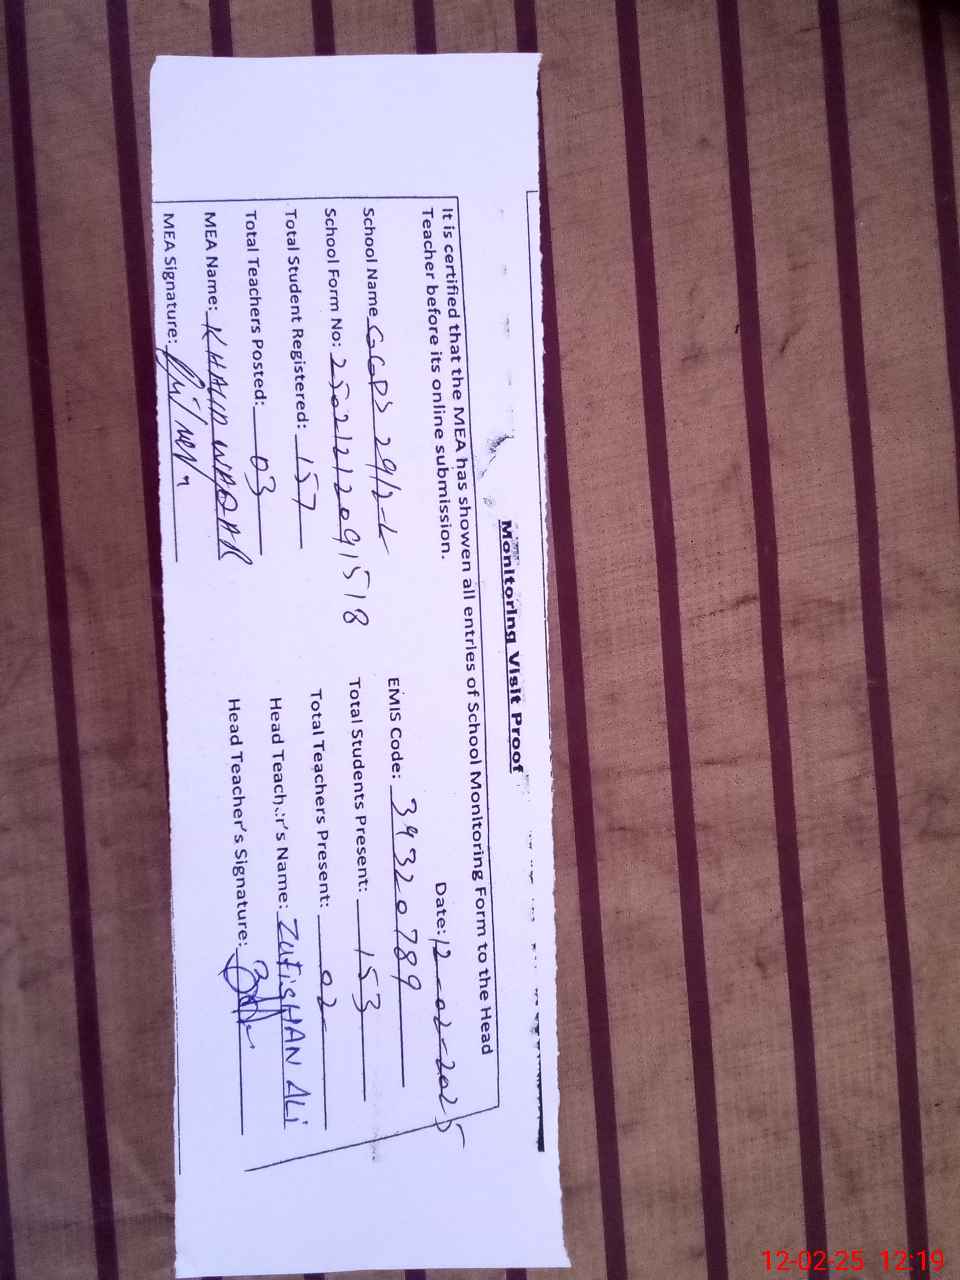 Monitoring Visit Proof
It is certified that the MEA has showen all entries of School Monitoring Form to the Head
Teacher before its online submission.
Date: 12-02-2025
School Name GGPS 29/2-L
EMIS Code: 39320789
School Form No: 25021212091518
Total Students Present: 153
Total Student Registered: 157
Total Teachers Present: 02
Total Teachers Posted: 03
Head Teacher's Name: ZufisHAN ALi
MEA Name: KHALID WAQAR
Head Teacher's Signature:
MEA Signature:
12-02-25 12:19